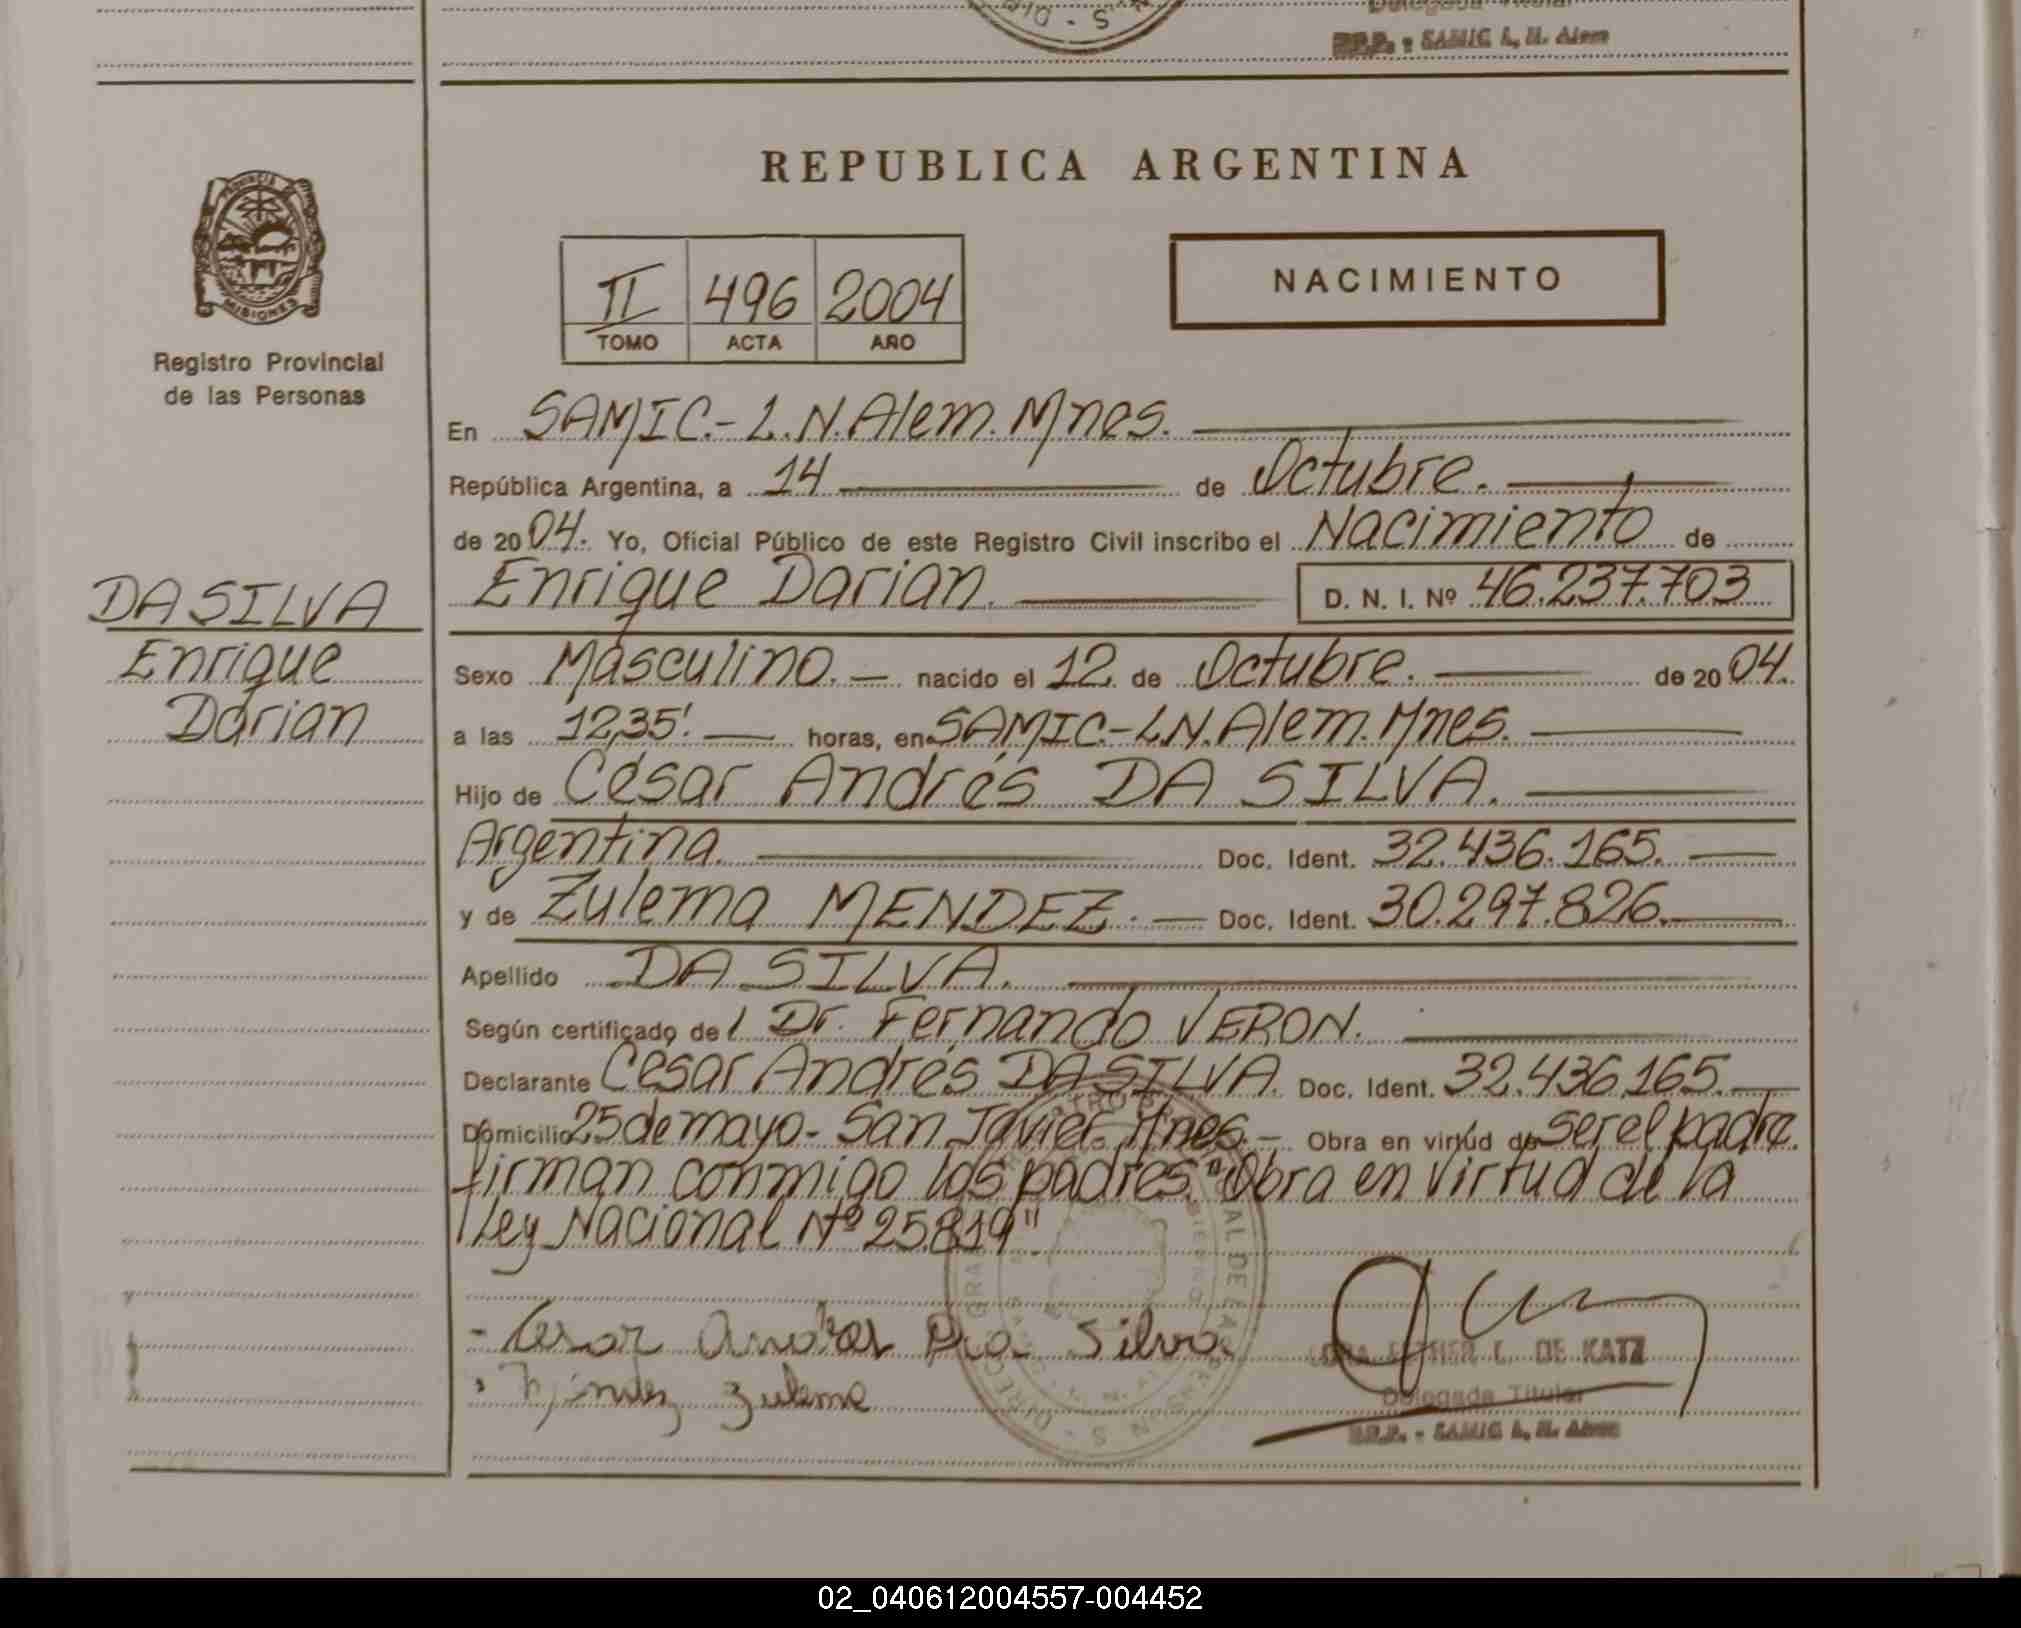 Delegada Titular
R.P.P. - SAMIC L. N. Alem
REPUBLICA ARGENTINA
PROVINCIA
MISIONES
Registro Provincial
de las Personas
II 496 2004
TOMO ACTA AÑO
NACIMIENTO
En SAMIC.-L.N.Alem.Mnes.
República Argentina, a 14 de Octubre.
de 2004. Yo, Oficial Público de este Registro Civil inscribo el Nacimiento de
Enrique Darian. D. N. I. Nº 46.237.703
DA SILVA
Enrique
Darian
Sexo Masculino.- nacido el 12 de Octubre. de 2004.
a las 12,35'. horas, en SAMIC.-L.N.Alem.Mnes.
Hijo de César Andrés DA SILVA.
Argentina. Doc. Ident. 32.436.165.
y de Zulema MENDEZ. Doc. Ident. 30.297.826.
Apellido DA SILVA.
Según certificado del Dr. Fernando VERON.
Declarante César Andrés DA SILVA. Doc. Ident. 32.436.165.
Domicilio 25 de mayo-San Javier. Mnes.- Obra en virtud de ser el padre.
firman conmigo los padres."Obra en virtud de la
Ley Nacional Nº 25.819".
- Cesar Andres Da Silva
Mendez Zulema
DE KATZ
Delegada Titular
R.P.P. - SAMIC L. N. Alem
02_040612004557-004452